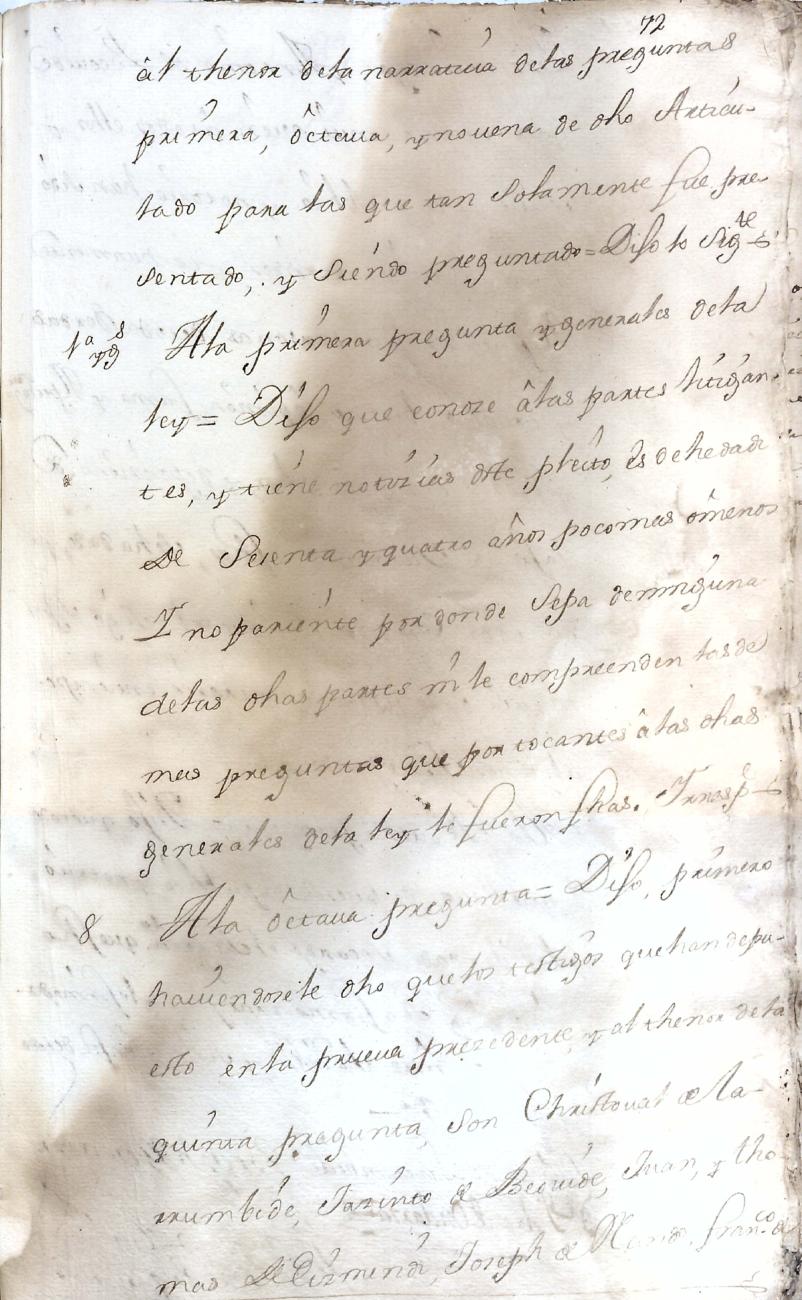 72
âl thenor dela narratiua delas preguntas
primera, ôctaua, y nouena de dho Articu-
lado para las que tan Solamente fue pre-
sentado, y Siendo preguntado = Dijo lo Sigte
1ª y gs Ala primera pregunta y generales dela
ley = Dijo que conoze âlas partes litigan-
tes, y tiene notizias deste pleito, ês de hedad
De Setenta y quatro años poco mas ômenos
I no pariente por donde Sepa de ninguna
delas dhas partes ni le compreenden las de
mas preguntas que por tocantes âlas dhas
generales dela ley le fueron fhas.
8 Ala ôctaua pregunta = Dijo, primero
hauiendosele dho que los testigos que han depu-
esto en la prueua prezedente, y al thenor dela
quinta pregunta, Son Christoual de la-
rrumbide, Jazinto de Beouide, Juan, y tho
mas de Eizmendi, Joseph de franco de